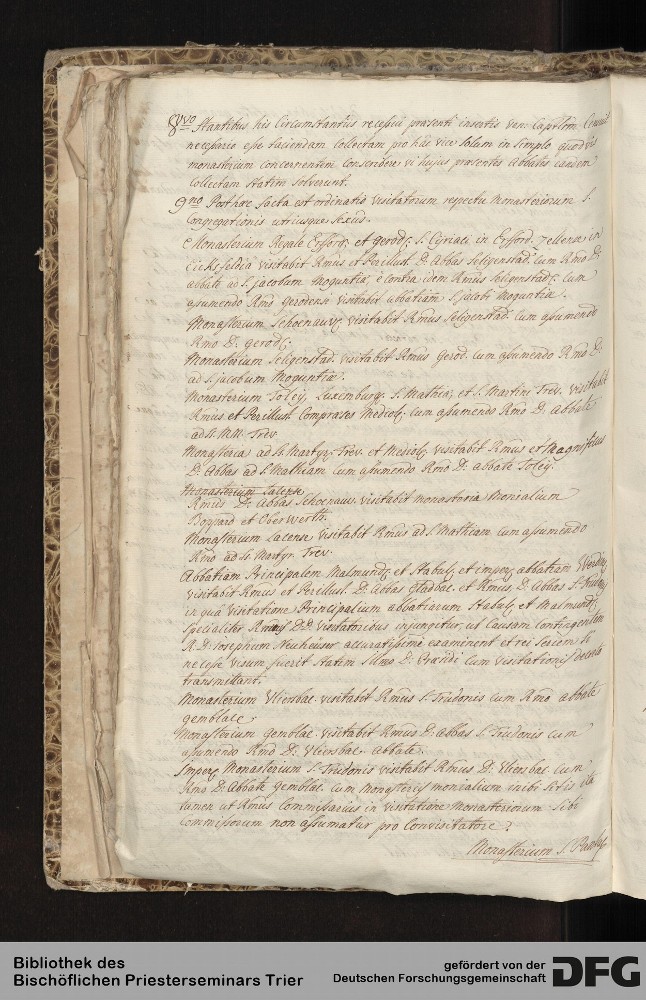 8vo Stantibus his Circumstantiis recessui præsenti insertis Ven: Captlum
necessario esse faciendam Collectam pro hac vice solam in simplo quodvis
monasterium concernentem conscendere vi hujus præsentes Abbates eandem
Collectam statim solverunt.
9no Post hæc facta est ordinatio visitatorum respectu Monasteriorum S.
Congregationis utriusque sexus.
Monasterium Regale Erford: et gerod: S. Cyriaci in Erford
visitabit Rmus et Perillust: D: Abbas Seligenstad: cum Rmo D:
abbate ad S: Jacobum Moguntiæ, è contra idem Rmus Seligenstad: cum
assumendo Rmo Gerodensi visitabit abbatiam S: Jacobi Moguntiæ.
Monasterium Schoenaw: visitabit Rmus Seligenstad: cum assumendo
Rmo D: gerod:
Monasterium Seligenstad: visitabit Rmus Gerod: cum assumendo Rmo D:
ad S: Jacobum Moguntiæ.
Monasterium Toley, Luxemburg: S. Mathiæ, et S: Martini Trev: visitabit
Rmus et Perillust: Compræses Mediol: cum assumendo Rmo D: Abbate
ad SS. MM: Trev:
Monasteria ad SS. Martyr: Trev: et Mediol: visitabit Rmus et Magnificus
D: Abbas ad S: Mathiam cum assumendo Rmo D: abbate Toley:
Monasterium Lacense
Rmus D: Abbas Schoenaw: visitabit monasteria Monialium
Boppard et Oberwerth.
Monasterium Lacense visitabit Rmus ad S: Mathiam cum assumendo
Rmo ad SS: Martyr: Trev:
Abbatiam Principalem Malmund: et Stabul: et imper: abbatiam Werdin:
visitabit Rmus et Perillust: D: Abbas gladbac: et Rmus D: Abbas S: Trudonis
in quâ visitatione Principalium abbatiarum Stabul: et Malmund:
specialiter Rmis DD: Visitatoribus injungitur, ut Causam
R: D: Josephum Neuheuser accuratissime examinent et rei seriem si
necesse visum fuerit statim Illmo D: Præsidi cum visitationis
transmittant.
Monasterium Vliersbac: visitabit Rmus S: Trudonis cum Rmo abbate
gemblac:
Monasterium gemblac: visitabit Rmus D: Abbas S: Trudonis cum
assumendo Rmo D: Vliersbac: abbate.
Imper: Monasterium S: Trudonis visitabit Rmus D: Vliersbac: cum
Rmo D: Abbate gemblac: cum monasteriis monialium ibi sitis ita
tamen ut Rmus Commissarius in visitatione Monasteriorum sibi
Commissorum non assumatur pro Convisitatore.
Monasterium S:
Bibliothek des
Bischöflichen Priesterseminars Trier
gefördert von der
Deutschen Forschungsgemeinschaft
DFG